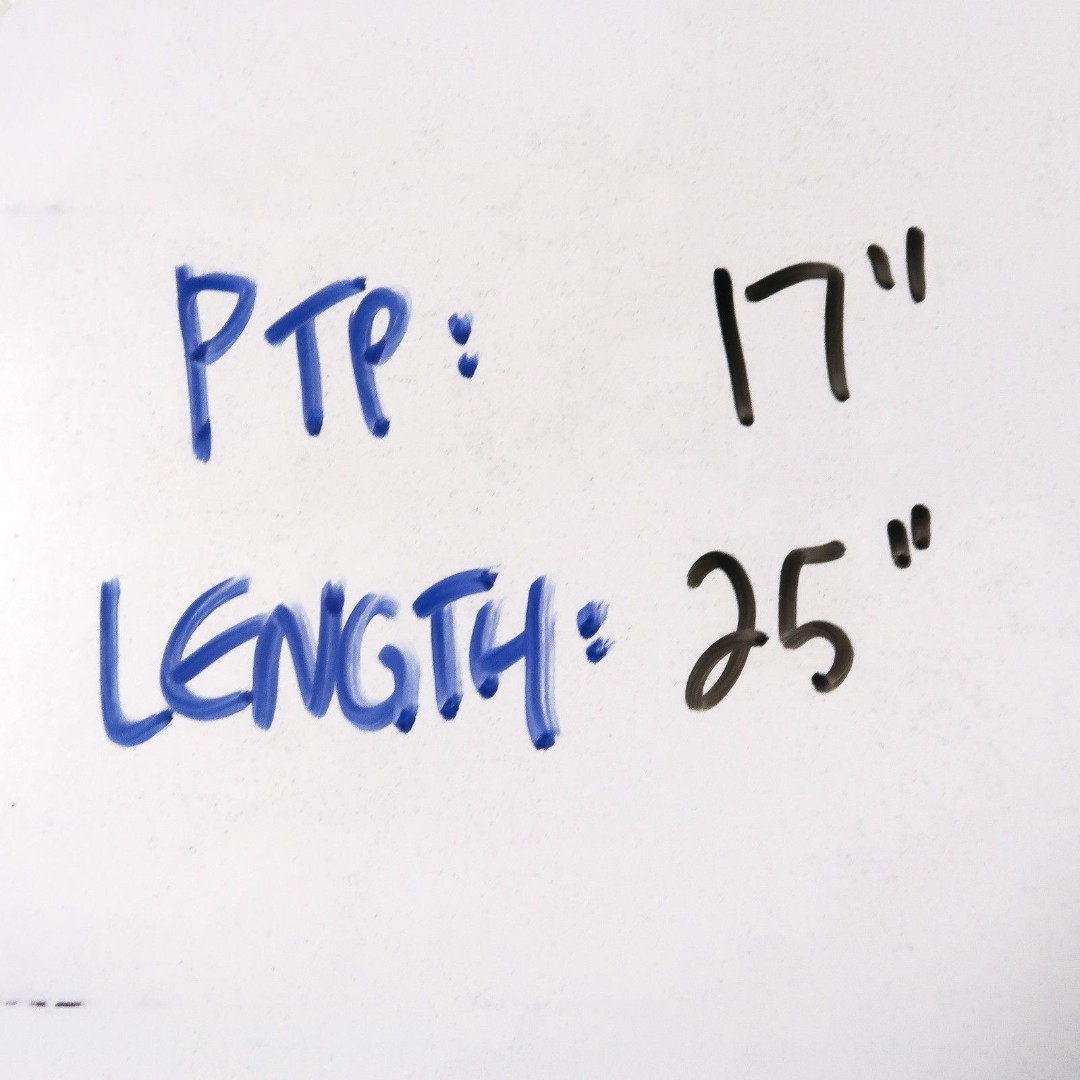 PTP: 17"
LENGTH: 25"